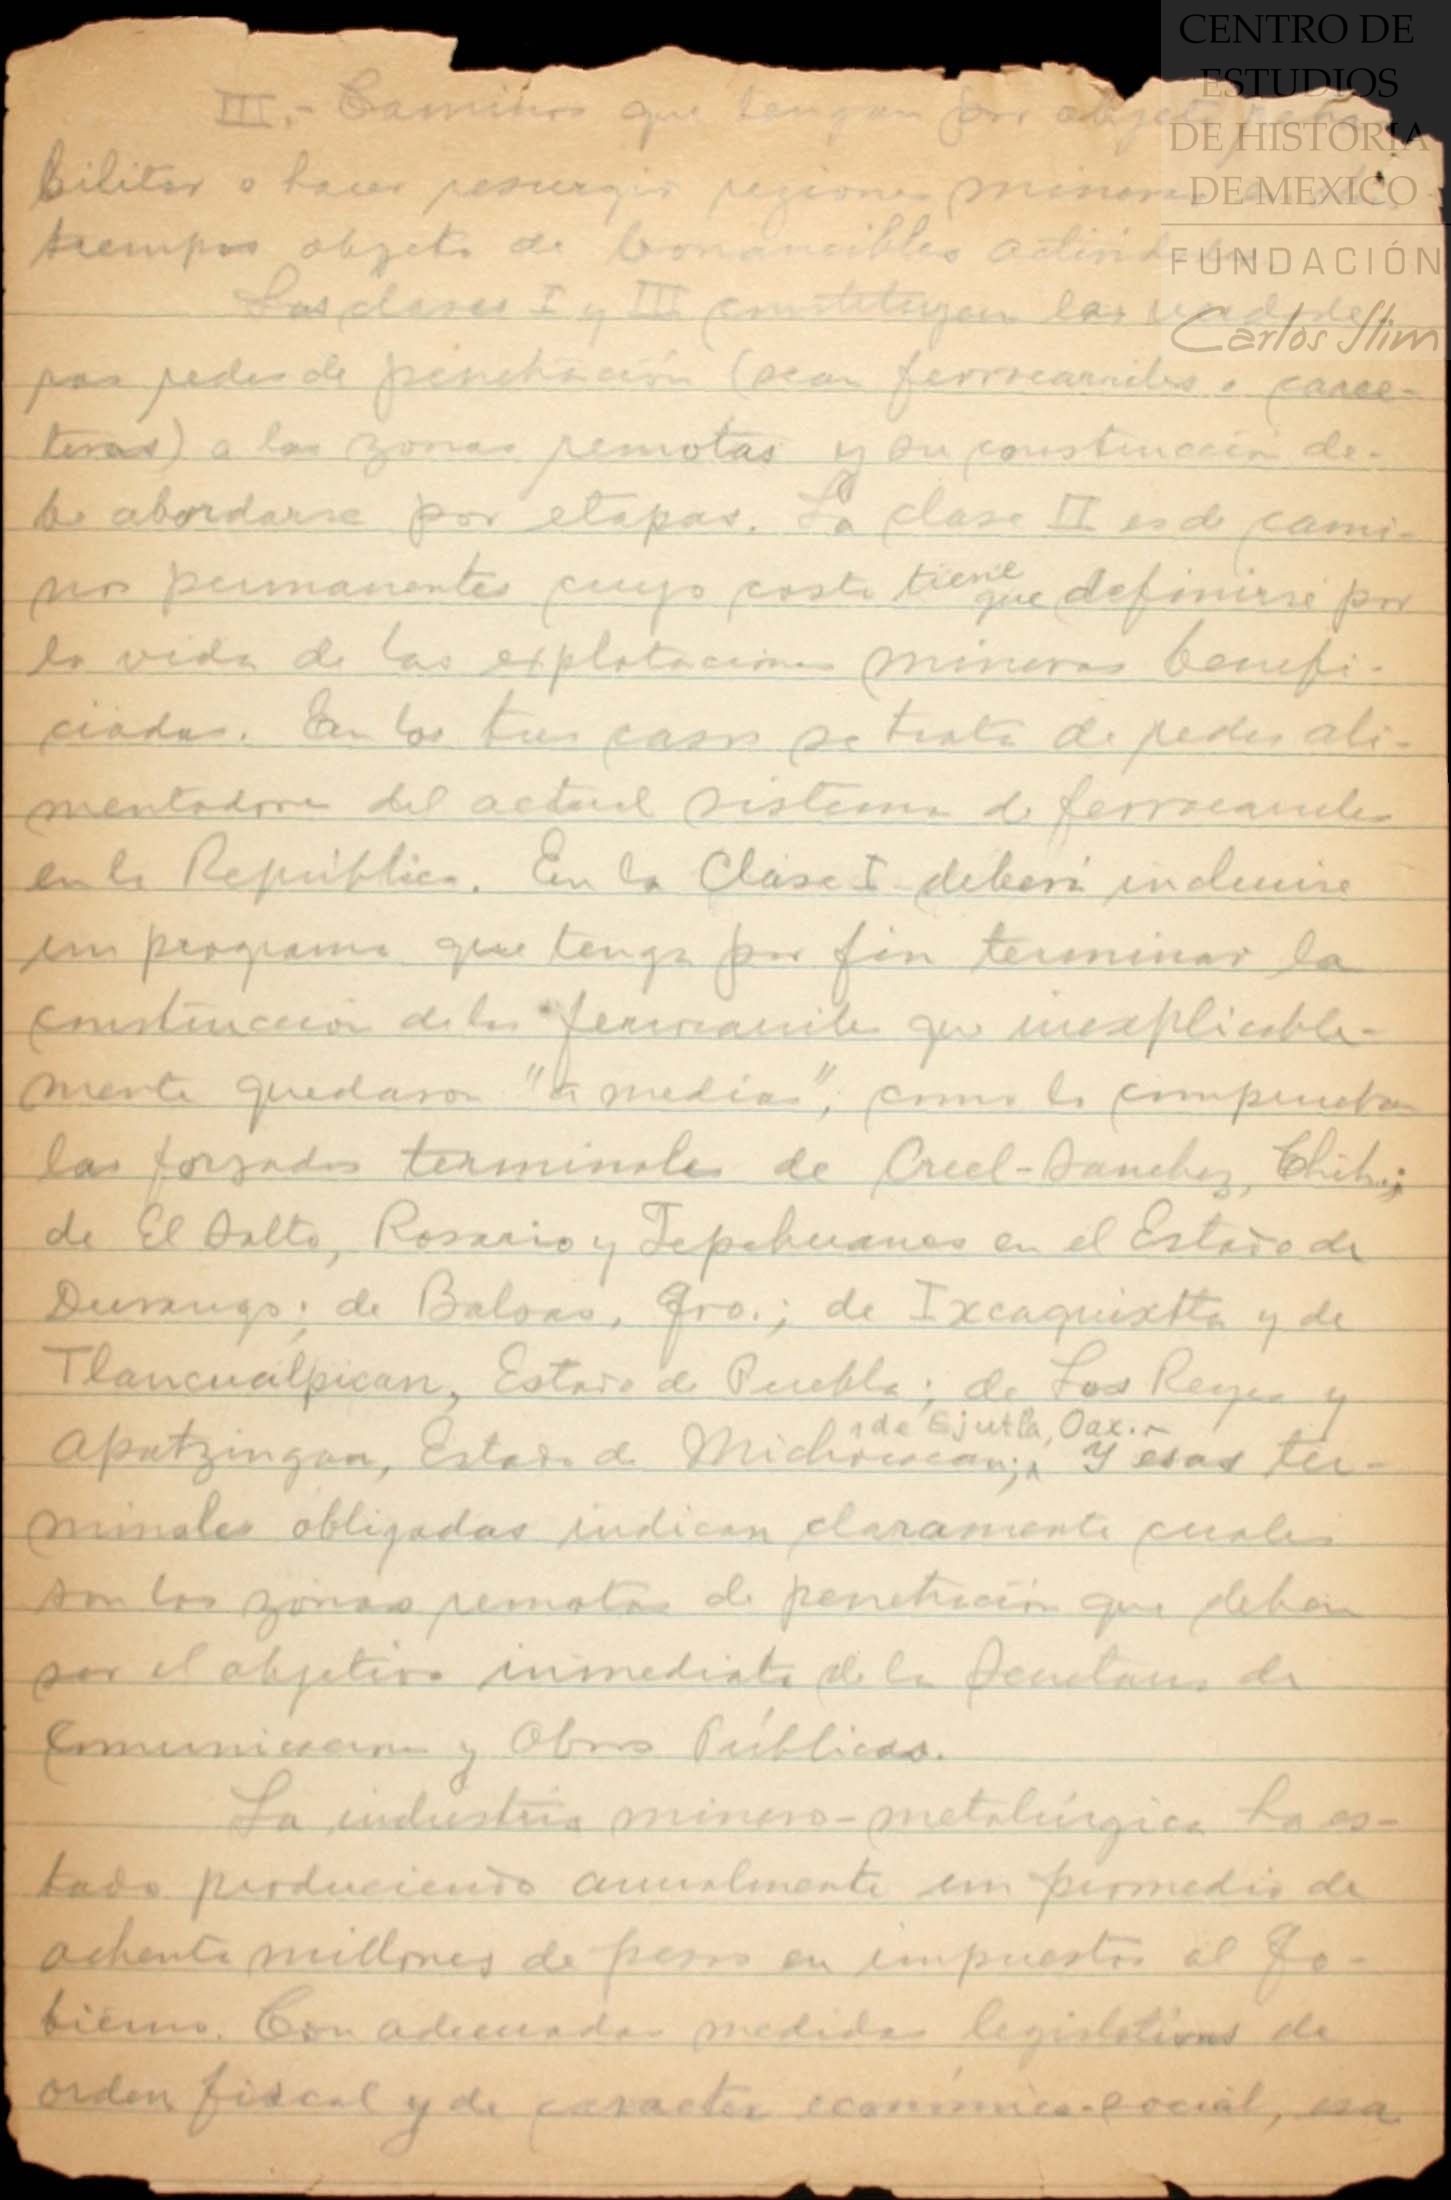 CENTRO DE
ESTUDIOS
DE HISTORIA
DE MEXICO
FUNDACIÓN
Carlos Slim
III.- Caminos que tengan por objeto reha-
bilitar o hacer resurgir regiones mineras
tiempos objeto de bonancibles actividades.
Las clases I y III constituyen las verdade-
ras redes de penetración (sean ferrocarriles o carre-
teras) a las zonas remotas y su construcción de-
be abordarse por etapas. La clase II es de cami-
nos permanentes cuyo costo tiene que definirse por
la vida de las explotaciones mineras benefi-
ciadas. En los tres casos se trata de redes ali-
mentadoras del actual sistema de ferrocarriles
en la República. En la Clase I deberá incluirse
un programa que tenga por fin terminar la
construcción de los ferrocarriles que inexplicable-
mente quedaron "a medias", como lo comprueban
las forzadas terminales de Creel-Sanchez, Chih.;
de El Salto, Rosario y Tepehuanes en el Estado de
Durango; de Balsas, Gro.; de Ixcaquixtla y de
Tlancualpican, Estado de Puebla; de Los Reyes y
Apatzingan, Estado de Michoacan; de Ejutla, Oax.- Y esas ter-
minales obligadas indican claramente cuales
son las zonas remotas de penetración que deben
ser el objetivo inmediato de la Secretaria de
Comunicaciones y Obras Públicas.
La industria minero-metalúrgica ha es-
tado produciendo anualmente un promedio de
ochenta millones de pesos en impuestos al Go-
bierno. Con adecuadas medidas legislativas de
orden fiscal y de caracter económico-social, esa